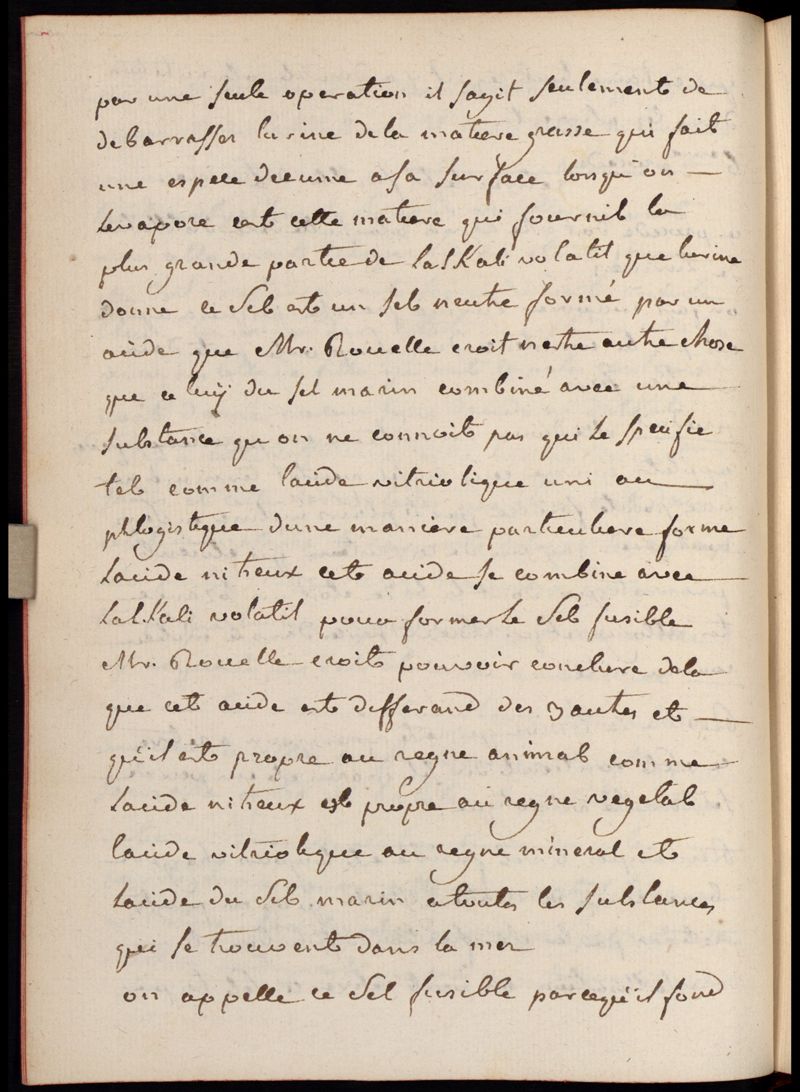 par une seule operation il sagit seulement de
debarrasser lurine de la matiere grasse qui fait
une espece decume a sa surface lorsqu'on —
levapore cest cette matiere qui fournit la
plus grande partie de lalKali volatil que lurine
donne ce Sel est un sel neutre formé par un
acide que Mr. Rouelle croit nestre autre chose
que celuy du sel marin combiné avec une
substance qu on ne connoit pas qui le specifie
tel comme lacide vitriolique uni au
phlogistique dune maniere particuliere forme
lacide nitreux cet acide se combine avec
lalKali volatil pour former le Sel fusible
Mr. Rouelle croit pouvoir conclure dela
que cet acide est differand des 3 autres et —
qu'il est propre au regne animal comme
lacide nitreux est propre au regne vegetal
lacide vitriolique au regne mineral et
lacide du Sel marin a toutes les substances
qui se trouvent dans la mer
on appelle ce Sel fusible parcequ'il fond